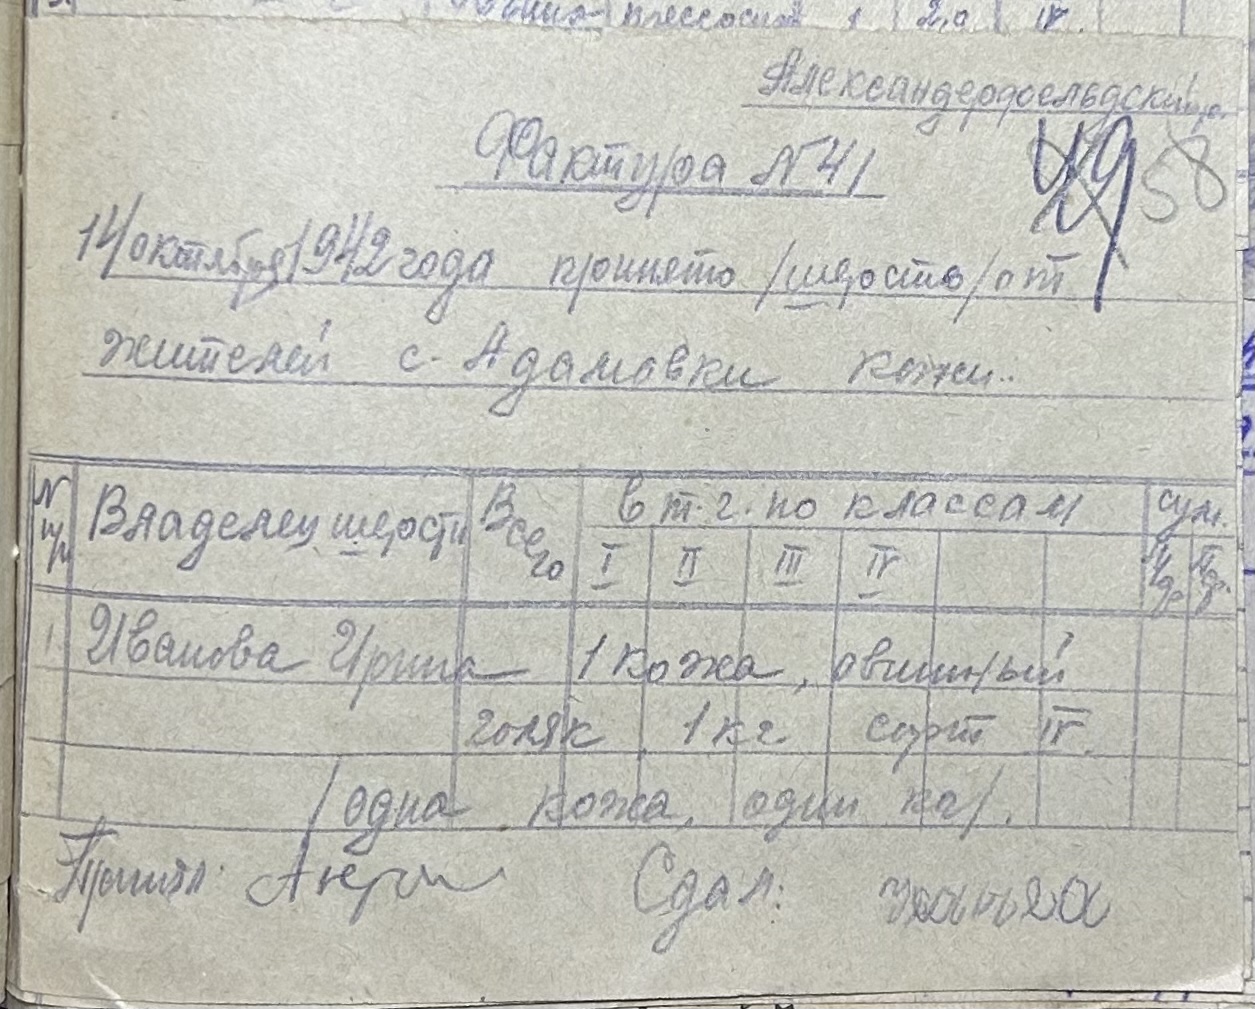 плессован 1 2,0 IV.
Александерфельдский
Фактура №41
49 58
14/октября 1942 года принято /шерсть/ от
жителей с. Адамовки кожи.
№ п/п Владелец шерсти Всего в т.г. по классам сум.
I II III IV
1. Иванова Ирина 1 кожа, овчинный
голяк 1 кг. сорт IV.
/одна кожа, один кг/.
Принял: Сдал: